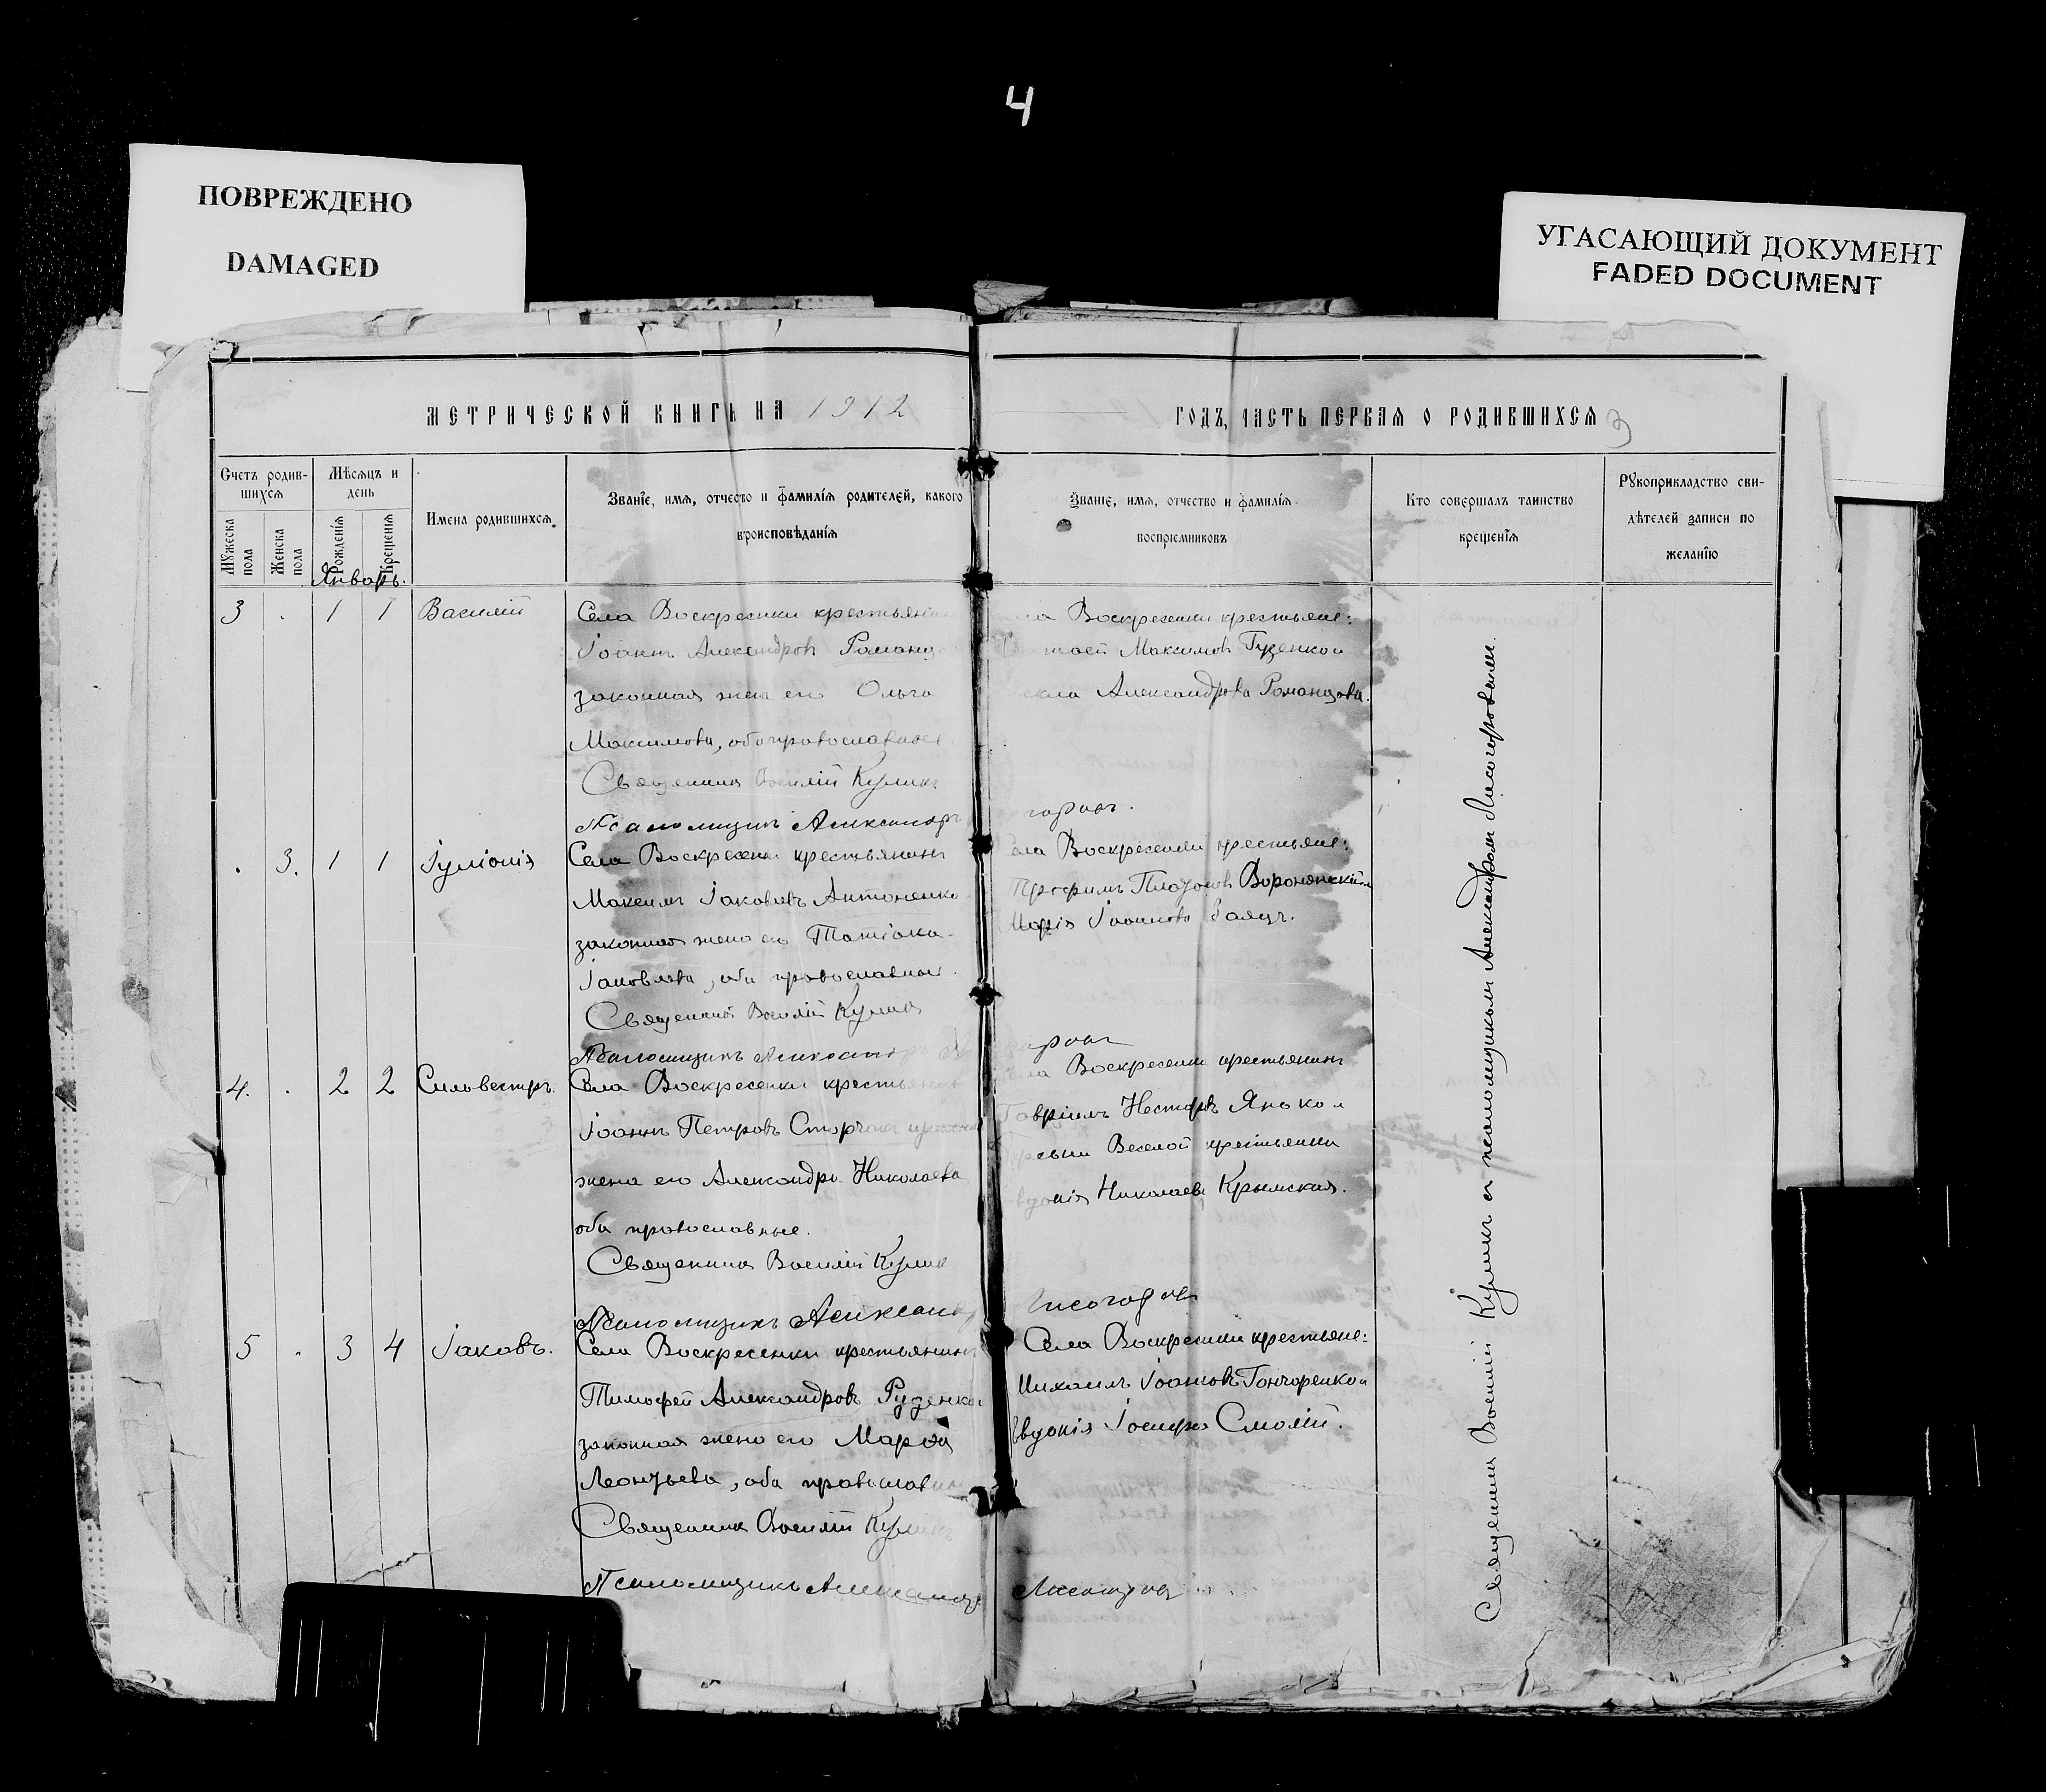 4
ПОВРЕЖДЕНО
DAMAGED
УГАСАЮЩИЙ ДОКУМЕНТ
FADED DOCUMENT
МЕТРИЧЕСКОЙ КНИГИ НА 1912
ГОДЪ, ЧАСТЬ ПЕРВАЯ О РОДИВШИХСЯ 3
Счетъ родив-
шихся
Мужеска пола
Женска пола
Мѣсяцъ и
день
Рожденія
Крещенія
Имена родившихся.
Званіе, имя, отчество и фамилія родителей, какого
вѣроисповѣданія
Званіе, имя, отчество и фамилія
воспріемниковъ
Кто совершалъ таинство
крещенія
Рукоприкладство сви-
дѣтелей записи по
желанію
Январь.
3 . 1 1 Василій
Села Воскресенки крестьянинъ
Іоаннъ Александровъ
законная жена его Ольга
Максимова, оба православные
Священникъ Василій Куликъ
Псаломщикъ Александръ
Воскресенки крестьяне:
Максимовъ Гузенко и
Александрова Романцова.
. 3. 1 1 Іуліанія
Села Воскресенки крестьянинъ
Максимъ Іаковлевъ Антоненко
законная жена его Татіана
Іаковлева, оба православные.
Священникъ Василій Куликъ
Псаломщикъ Александръ
Воскресенки крестьяне:
Платоновъ
Марія Іоаннова Заяцъ.
4. . 2 2 Сильвестръ.
Села Воскресенки крестьянинъ
Іоаннъ Петровъ
жена его Александра Николаева
оба православные.
Священникъ Василій Куликъ
Псаломщикъ Александръ
Лисогоровъ
Воскресенки крестьянинъ
Гавріилъ Несторовъ Янько и
Веселой крестьянка
Николаева Крымская.
5 . 3 4 Іаковъ.
Села Воскресенки крестьянинъ
Тимофей Александровъ Руденко и
законная жена его Марѳа
Леонтьева, оба православные
Священникъ Василій Куликъ
Псаломщикъ Александръ
Лисогоровъ
Села Воскресенки крестьяне:
Михаилъ Іоанновъ Гончаренко и
Евдокія Іосифова Смолій.
Священникъ Василій Куликъ съ псаломщикомъ Александромъ Лисогоровымъ.